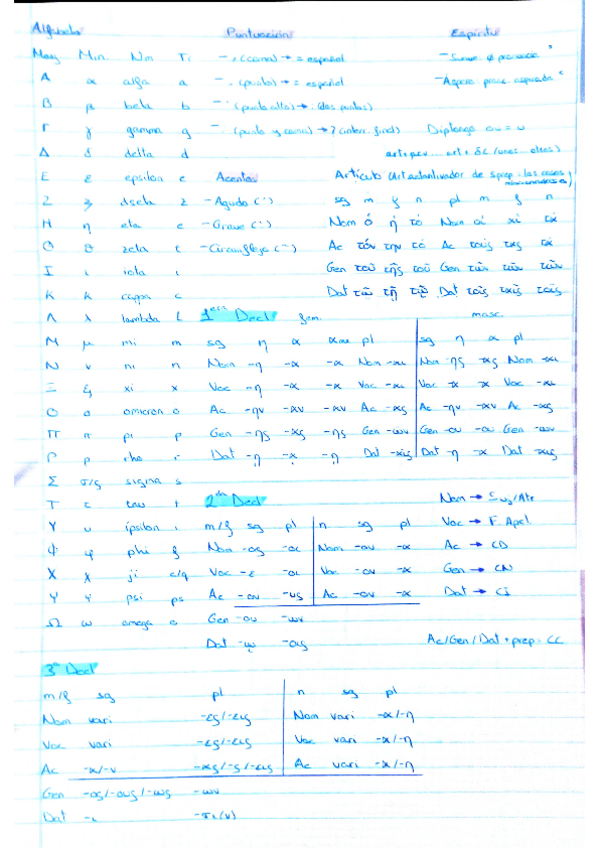 Alfabeto Puntuación Espíritus
May Min Nm Tr - , (coma) → = español - Suave ø pronuncia ᾿
Α α alfa a - . (punto) → = español - Áspero pronc aspirada ῾
Β β beta b - · (punto alto) → : (dos puntos)
Γ γ gamma g - ; (punto y coma) → ? (interr. final) Diptongo ου = u
Δ δ delta d art + μεν ... art + δε (unos otros)
Ε ε epsilon e Acentos Artículo (Art sustantivador de sprep.
Ζ ζ dseta z - Agudo (´) sg m f n pl m f n
Η η eta e - Grave (`) Nom ὁ ἡ τό Nom οἱ αἱ τά
Θ θ zeta t - Circunflejo (~) Ac τόν την τό Ac τούς τάς τά
Ι ι iota i Gen τοῦ τῆς τοῦ Gen τῶν τῶν τῶν
Κ κ cappa c Dat τῶ τῇ τῷ Dat τοῖς ταῖς τοῖς
Λ λ lambda l 1era Decl fem. masc.
Μ μ mi m sg η α αxx pl sg η α pl
Ν ν ni n Nom -η -α -α Nom -αι Nom -ης -ας Nom -αι
Ξ ξ xi x Voc -η -α -α Voc -αι Voc -α -α Voc -αι
Ο ο omicron o Ac -ην -αν -αν Ac -ας Ac -ην -αν Ac -ας
Π π pi p Gen -ης -ας -ης Gen -ων Gen -ου -ου Gen -ων
Ρ ρ rho r Dat -ῃ -ᾳ -ῃ Dat -αις Dat -ῃ -ᾳ Dat -αις
Σ σ/ς sigma s
Τ τ tau t 2da Decl Nom → Suj/Atr
Υ υ ípsilon i m/f sg pl n sg pl Voc → F. Apel
Φ φ phi f Nom -ος -οι Nom -ον -α Ac → CD
Χ χ ji c/q Voc -ε -οι Voc -ον -α Gen → CN
Ψ ψ psi ps Ac -ον -υς Ac -ον -α Dat → CI
Ω ω omega o Gen -ου -ων
Dat -ῳ -οις Ac/Gen/Dat + prep - CC
3a Decl
m/f sg pl n sg pl
Nom vari -ες/-εις Nom vari -α/-η
Voc vari -ες/-εις Voc vari -α/-η
Ac -α/-ν -ας/-ς/-εις Ac vari -α/-η
Gen -ος/-ους/-ως -ων
Dat -ι -σι(ν)